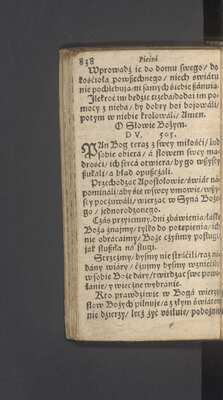 838 Pieśni
Wprowadź ie do domu swego / do
kościoła powszechnego / niech światu
nie pochlebuią ni samych siebie
Ilekroć im będzie trzeba / dodai im po-
mocy z nieba / by dobry boi boiowali /
potym w niebie krolowali / Amen.
O Słowie Bożym.
D V. 505.
PAn Bog teraz z swey miłości / lud
sobie obiera / a słowem swey mą-
drości / ich serca otwiera / by go wszyscy
szukali / a błąd opuszczali.
Przechodząc Apostołowie / świat na-
pominali / aby się wszyscy umowie / wszy-
scy poczuwali / wierząc w Syna Boże-
go / iednorodzonego.
Czas przyiemny / dni zbáwienia / łaskę
Boża znaymy / tylko do potępienia / ich
nie obracaymy / Boże czyńmy posługi /
jak służba na sługi.
Strzeżmy / byśmy nie stracili / raz na-
dany wiary / czyńmy byśmy wzniecili
w sobie Boże dary / twierdząc swe powo-
łanie / y wieczne wybranie.
Kto prawdziwie w Boga wierzy
słow Bożych pilnuje / a z złym światem
nie dzierży / lecz żyć usiłuie / pobożnie